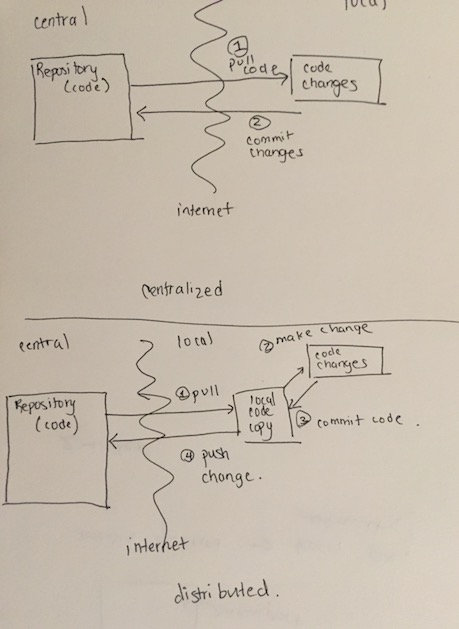 central
local
Repository
(code)
①
pull
code
code
changes
②
commit
changes
internet
centralized
central
local
② make change
code
changes
① pull
Repository
(code)
local
code
copy
③ commit code .
④ push
change .
internet
distributed .